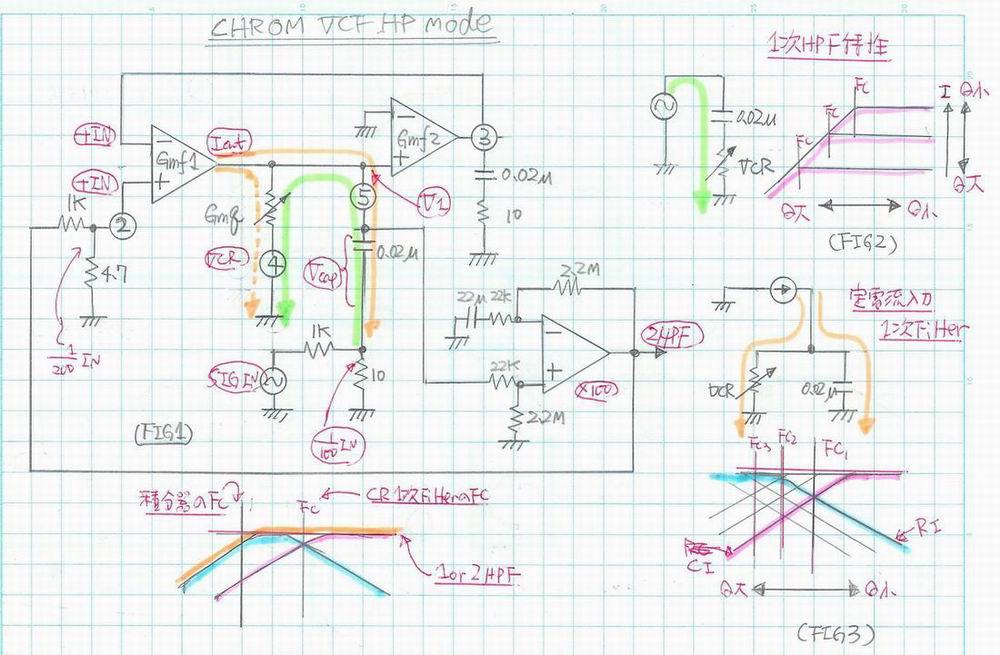 CHROM VCF HP mode
+IN
Gmf1
−
+
Iout
Gmf2
−
+
3
+IN
1K
2
4.7
1/200 IN
Gmq
VCR
4
5
V1
Vcap
0.02μ
0.02μ
10
1K
SIG IN
10
1/100 IN
(FIG1)
22μ 22K
2.2M
−
+
22K
2.2M
×100
2HPF
1次HPF特性
0.02μ
VCR
Fc
Fc
Fc
I Q小
Q大
Q大 Q小
(FIG2)
定電流入力
1次Filter
VCR
0.02μ
Fc3 Fc2 FC1
RI
CI
Q大 Q小
(FIG3)
積分器のFc
CR1次FilterのFC
Fc
1or2HPF